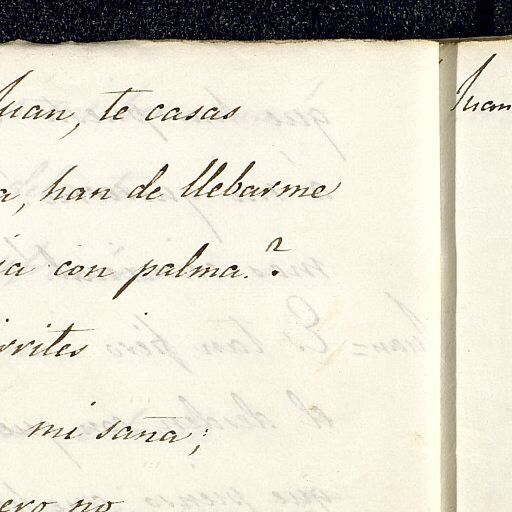 Juan, te casas
a, han de llebarme
ia con palma?
irrites
mi saña;
ero no
Juan